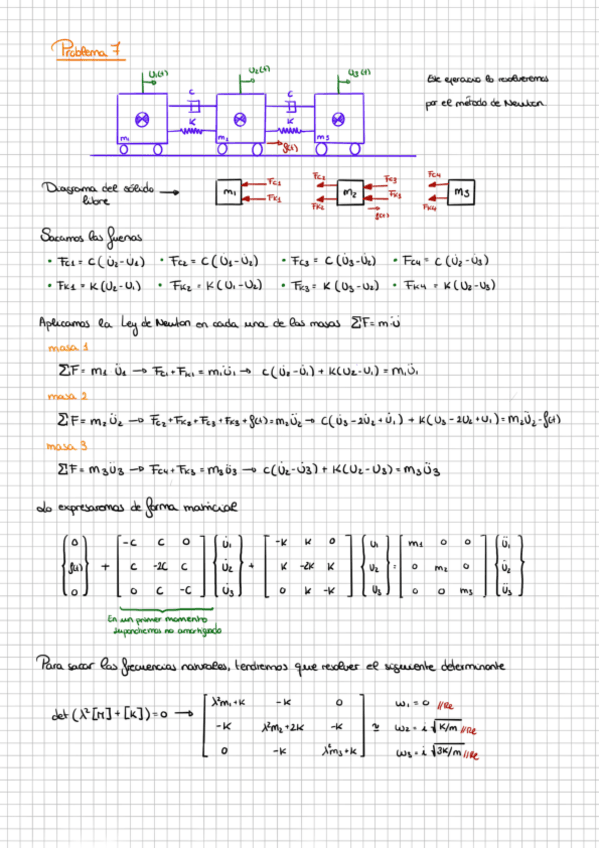 Problema 7
U1(t) U2(t) U3(t)
Este ejercicio lo resolveremos
por el método de Newton
C C
K K
m1 m2 m3
f(t)
Diagrama del sólido libre →
m1 Fc1 Fk1 Fc2 Fk2 m2 Fc3 Fk3 f(t) Fc4 Fk4 m3
Sacamos las fuerzas
• Fc1 = C(U̇2-U̇1) • Fc2 = C(U̇1-U̇2) • Fc3 = C(U̇3-U̇2) • Fc4 = C(U̇2-U̇3)
• Fk1 = K(U2-U1) • Fk2 = K(U1-U2) • Fk3 = K(U3-U2) • Fk4 = K(U2-U3)
Aplicamos la Ley de Newton en cada una de las masas ΣF=m·ü
masa 1
ΣF = m1 Ü1 → Fc1+Fk1 = m1Ü1 → C(U̇2-U̇1)+K(U2-U1) = m1Ü1
masa 2
ΣF = m2Ü2 → Fc2+Fk2+Fc3+Fk3+f(t)=m2Ü2 → C(U̇3-2U̇2+U̇1) + K(U3-2U2+U1)=m2Ü2-f(t)
masa 3
ΣF = m3Ü3 → Fc4+Fk4 = m3Ü3 → C(U̇2-U̇3)+K(U2-U3) = m3Ü3
Lo expresaremos de forma matricial
0 -C C 0 U̇1 -K K 0 U1 m1 0 0 Ü1
f(t) + C -2C C U̇2 + K -2K K U2 = 0 m2 0 Ü2
0 0 C -C U̇3 0 K -K U3 0 0 m3 Ü3
En un primer momento
supondremos no amortiguado
Para sacar las frecuencias naturales, tendremos que resolver el siguiente determinante
λ²m1+K -K 0 ω1 = 0 //Re
det(λ²[M]+[K])=0 → -K λ²m2+2K -K ≃ ω2 = i √K/m //Re
0 -K λ²m3+K ω3 = i √3K/m //Re